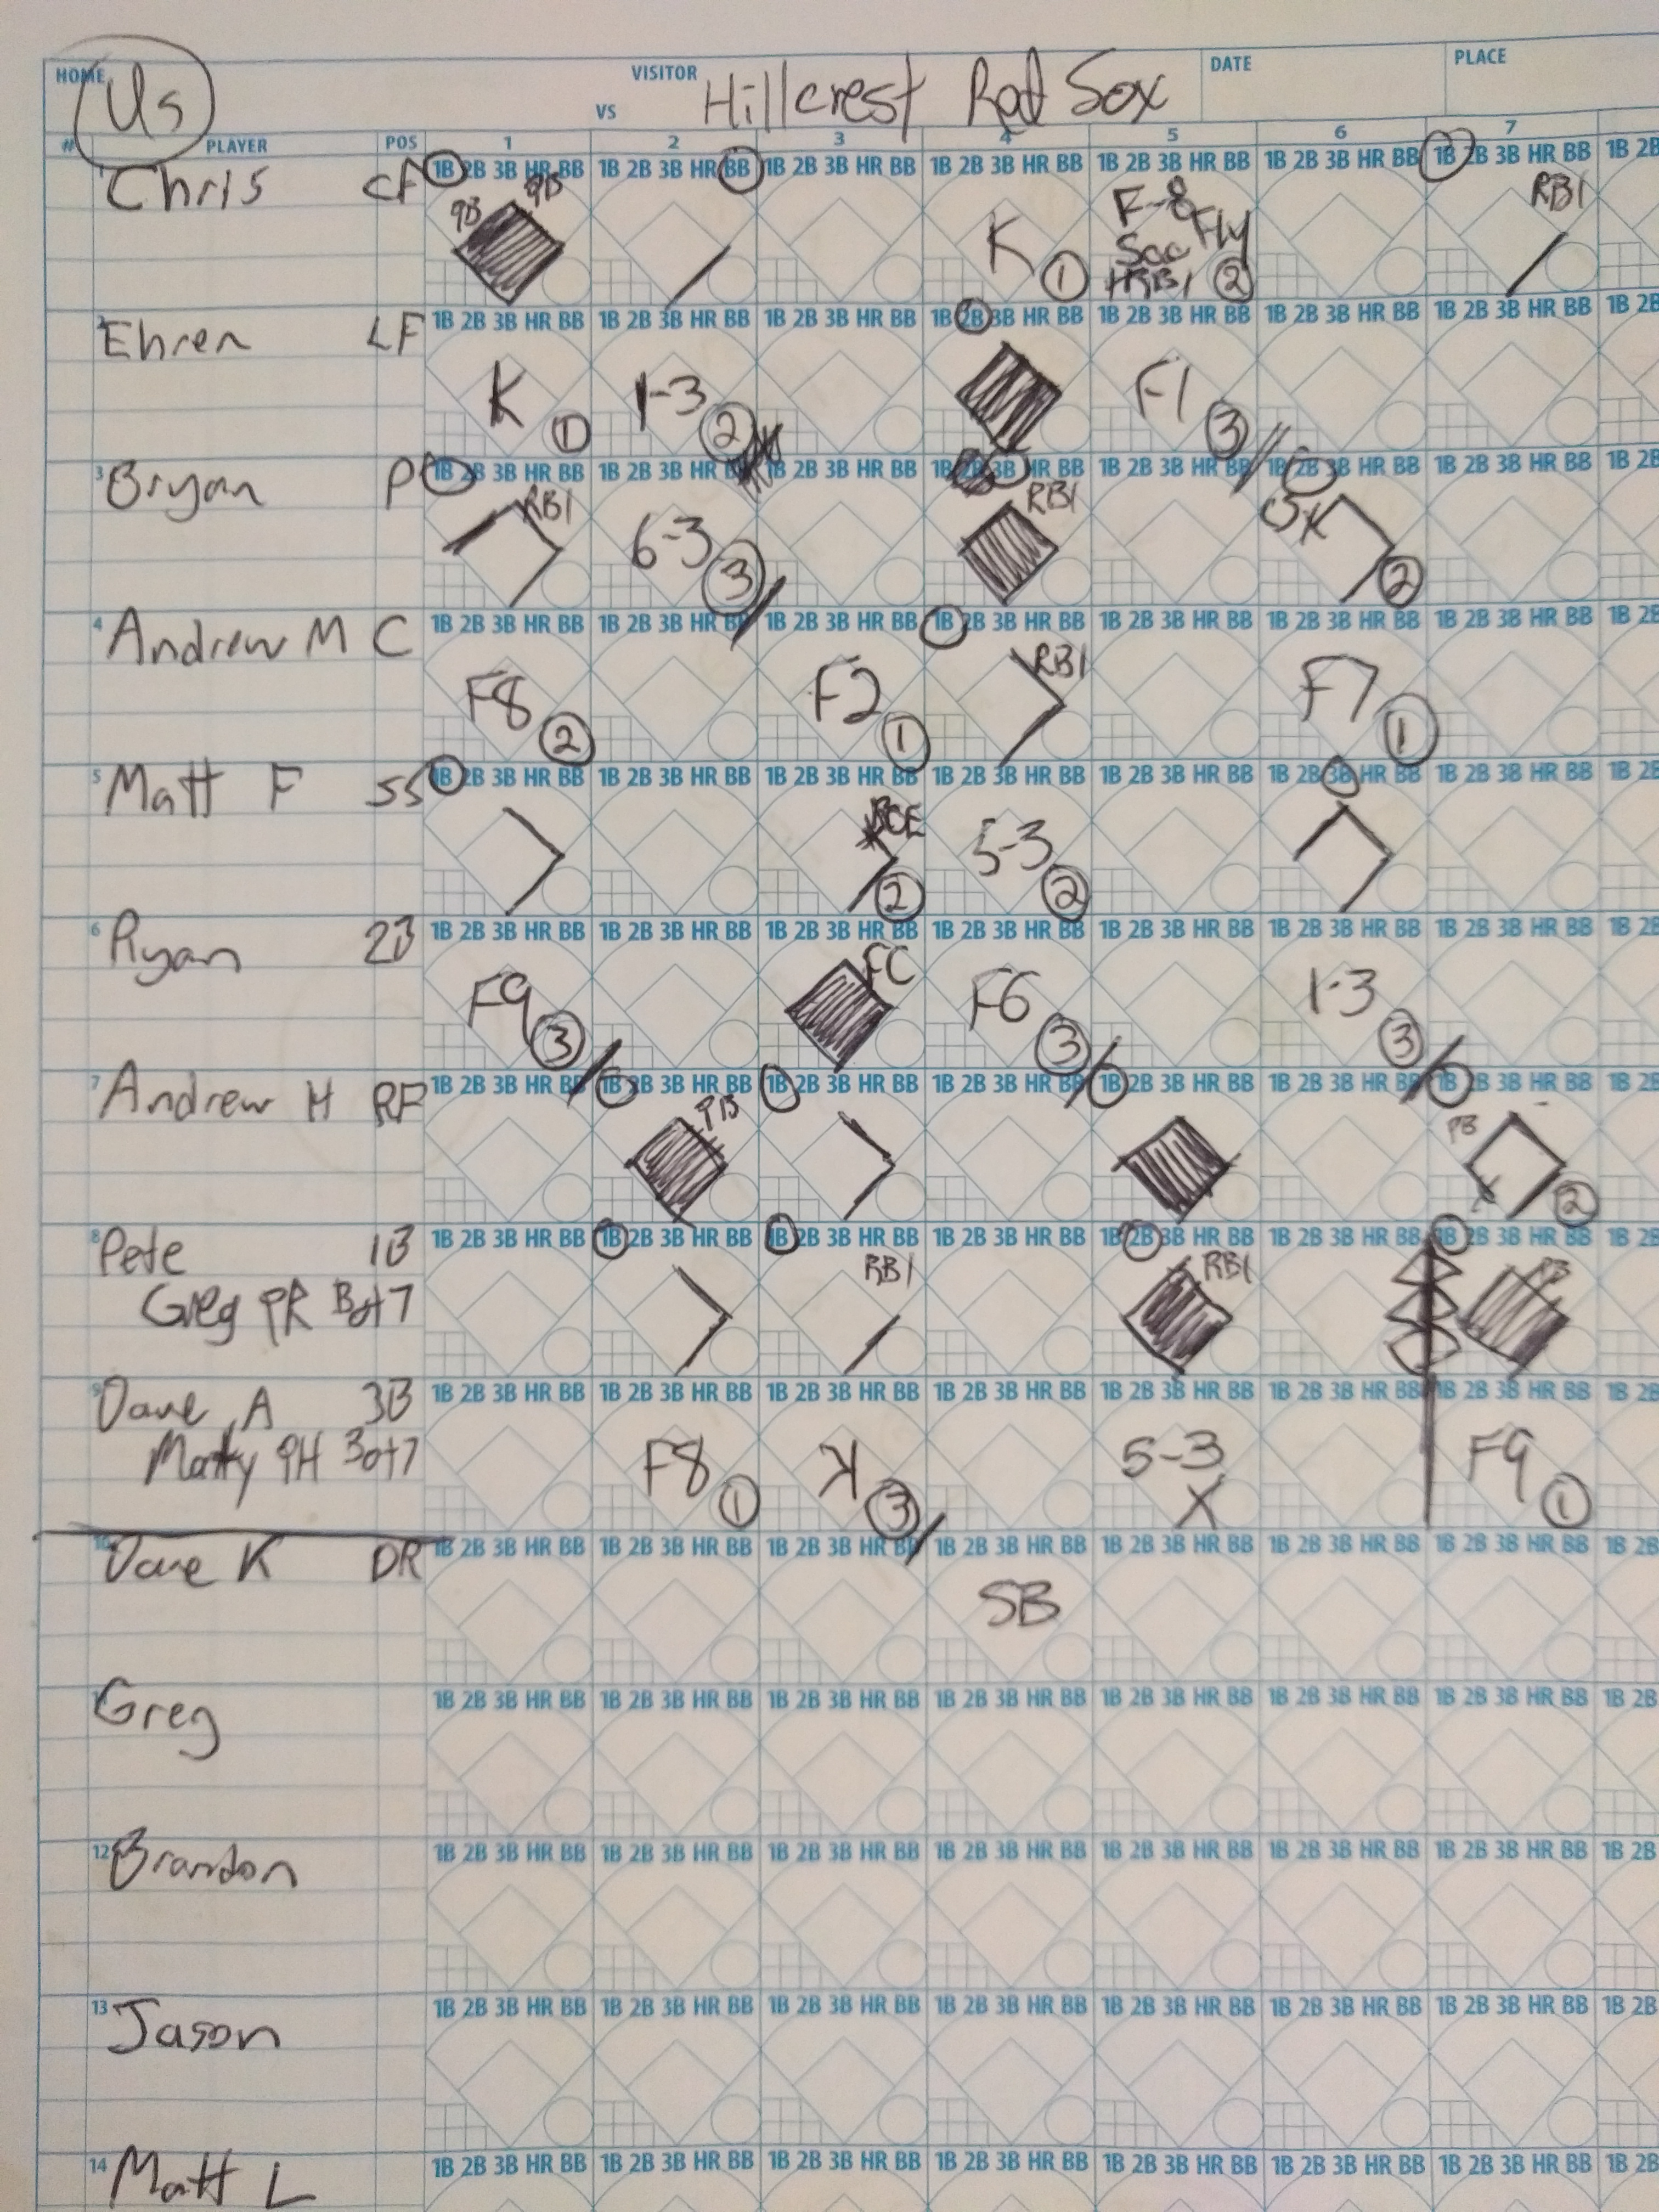 HOME Us VS VISITOR Hillcrest Red Sox DATE PLACE
# PLAYER POS 1 2 3 4 5 6 7
1B 2B 3B HR BB 1B 2B 3B HR BB 1B 2B 3B HR BB 1B 2B 3B HR BB 1B 2B 3B HR BB 1B 2B 3B HR BB 1B 2B 3B HR BB 1B 2B
Chris CF PB PB K 1 F-8 Sac Fly RBI 2 RBI
1B 2B 3B HR BB 1B 2B 3B HR BB 1B 2B 3B HR BB 1B 2B 3B HR BB 1B 2B 3B HR BB 1B 2B 3B HR BB 1B 2B 3B HR BB 1B 2B
Ehren LF K 1 1-3 2 F1 3
1B 2B 3B HR BB 1B 2B 3B HR BB 1B 2B 3B HR BB 1B 2B 3B HR BB 1B 2B 3B HR BB 1B 2B 3B HR BB 1B 2B 3B HR BB 1B 2B
3 Bryan P RBI 6-3 3 RBI 2
1B 2B 3B HR BB 1B 2B 3B HR BB 1B 2B 3B HR BB 1B 2B 3B HR BB 1B 2B 3B HR BB 1B 2B 3B HR BB 1B 2B 3B HR BB 1B 2B
4 Andrew M C F8 2 F2 1 RBI F7 1
1B 2B 3B HR BB 1B 2B 3B HR BB 1B 2B 3B HR BB 1B 2B 3B HR BB 1B 2B 3B HR BB 1B 2B 3B HR BB 1B 2B 3B HR BB 1B 2B
5 Matt F SS 2 5-3 2
1B 2B 3B HR BB 1B 2B 3B HR BB 1B 2B 3B HR BB 1B 2B 3B HR BB 1B 2B 3B HR BB 1B 2B 3B HR BB 1B 2B 3B HR BB 1B 2B
6 Ryan 2B F9 3 FC F6 3 1-3 3
1B 2B 3B HR BB 1B 2B 3B HR BB 1B 2B 3B HR BB 1B 2B 3B HR BB 1B 2B 3B HR BB 1B 2B 3B HR BB 1B 2B 3B HR BB 1B 2B
7 Andrew H RF PB PB 2
1B 2B 3B HR BB 1B 2B 3B HR BB 1B 2B 3B HR BB 1B 2B 3B HR BB 1B 2B 3B HR BB 1B 2B 3B HR BB 1B 2B 3B HR BB 1B 2B
8 Pete 1B RBI RBI PB
Greg PR Bot 7
1B 2B 3B HR BB 1B 2B 3B HR BB 1B 2B 3B HR BB 1B 2B 3B HR BB 1B 2B 3B HR BB 1B 2B 3B HR BB 1B 2B 3B HR BB 1B 2B
9 Dave A 3B
Matty PH Bot 7 F8 1 K 3 5-3 X F9 1
1B 2B 3B HR BB 1B 2B 3B HR BB 1B 2B 3B HR BB 1B 2B 3B HR BB 1B 2B 3B HR BB 1B 2B 3B HR BB 1B 2B 3B HR BB 1B 2B
10 Dave K DR SB
1B 2B 3B HR BB 1B 2B 3B HR BB 1B 2B 3B HR BB 1B 2B 3B HR BB 1B 2B 3B HR BB 1B 2B 3B HR BB 1B 2B 3B HR BB 1B 2B
Greg
1B 2B 3B HR BB 1B 2B 3B HR BB 1B 2B 3B HR BB 1B 2B 3B HR BB 1B 2B 3B HR BB 1B 2B 3B HR BB 1B 2B 3B HR BB 1B 2B
12 Brandon
1B 2B 3B HR BB 1B 2B 3B HR BB 1B 2B 3B HR BB 1B 2B 3B HR BB 1B 2B 3B HR BB 1B 2B 3B HR BB 1B 2B 3B HR BB 1B 2B
13 Jason
1B 2B 3B HR BB 1B 2B 3B HR BB 1B 2B 3B HR BB 1B 2B 3B HR BB 1B 2B 3B HR BB 1B 2B 3B HR BB 1B 2B 3B HR BB 1B 2B
14 Matt L